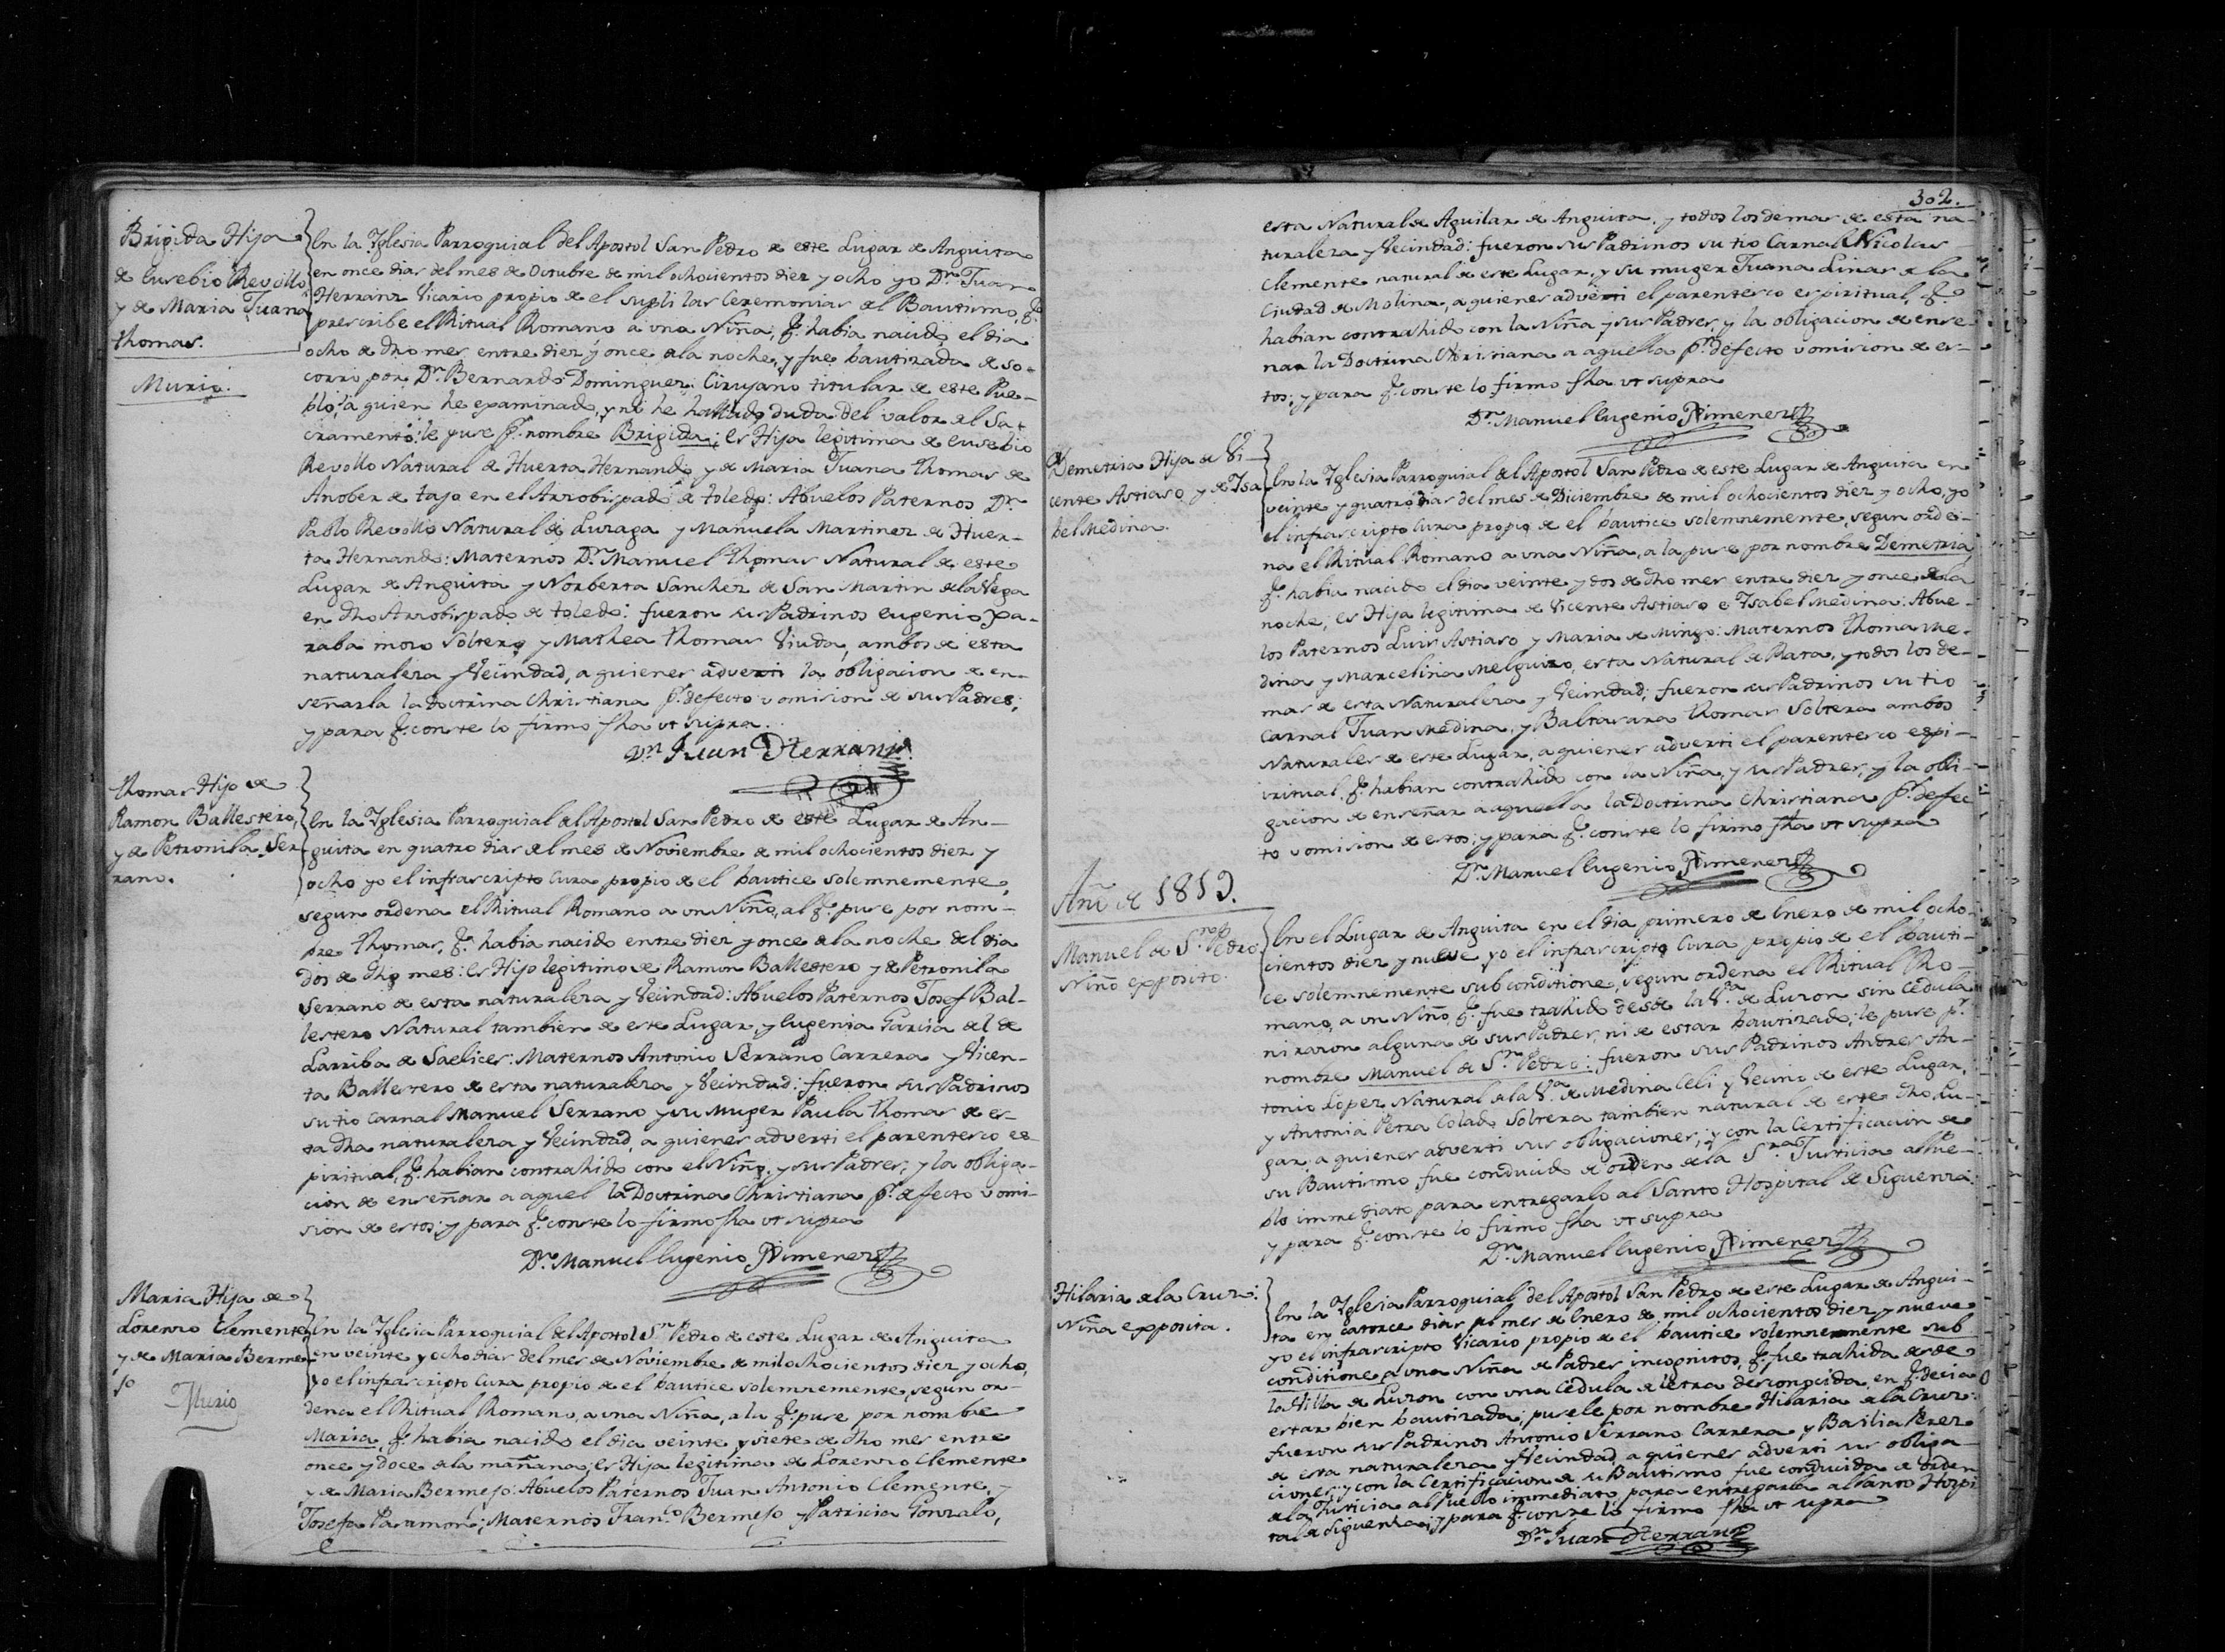 Brigida Hija
de Eusebio Revollo
y de Maria Juana
thomas.
Murio.
En la Yglesia Parroquial del Apostol San Pedro de este Lugar de Anguita
en once dias del mes de Octubre de mil ochocientos diez y ocho yo Dn. Juan
Herranz Vicario propio de el supli las Ceremonias del Bautismo, q.e
prescribe el Ritual Romano a una Niña, q.e habia nacido el dia
ocho de dho mes entre diez y once de la noche, y fue bautizada de so-
corro por Dn. Bernardo Dominguez Cirujano titular de este Pue-
blo, a quien he examinado, y no he hallado duda del valor del Sa-
cramento: le puse p.r nombre Brigida; es Hija legitima de Eusebio
Revollo Natural de Huerta Hernando, y de Maria Juana thomas de
Anober de tajo en el Arzobispado de toledo: Abuelos Paternos Dn.
Pablo Revollo Natural de Luzaga y Manuela Martinez de Huer-
ta Hernando: Maternos Dn. Manuel thomas Natural de este
Lugar de Anguita y Norberta Sanchez de San Martin de la Vega
en dho Arzobispado de toledo: fueron sus Padrinos Eugenio Pa-
raba mozo Soltero y Mathea thomas Viuda, ambos de esta
naturaleza y Vecindad, a quienes adverti la obligacion de en-
señarla la doctrina Christiana p.r defecto u omision de sus Padres;
y para q.e conste lo firmo fha ut supra.
Dn. Juan Herranz
thomas Hijo de
Ramon Ballestero,
y de Petronila Ser-
rano.
En la Yglesia Parroquial del Apostol San Pedro de este Lugar de An-
guita en quatro dias del mes de Noviembre de mil ochocientos diez y
ocho yo el infrascripto Cura propio de el bautice solemnemente,
segun ordena el Ritual Romano a un Niño, al q.e puse por nom-
bre thomas, q.e habia nacido entre diez y once de la noche del dia
dos de dho mes: es Hijo legitimo de Ramon Ballestero y de Petronila
Serrano de esta naturaleza y Vecindad: Abuelos Paternos Josef Bal-
lestero Natural tambien de este Lugar, y Eugenia Garcia del de
Larriba de Saelices: Maternos Antonio Serrano Carrera y Vicen-
ta Ballestero de esta naturaleza y Vecindad: fueron sus Padrinos
su tio Carnal Manuel Serrano y su Muger Paula thomas de es-
ta dha naturaleza y Vecindad, a quienes adverti el parentesco es-
piritual, q.e habian contrahido con el Niño, y sus Padres; y la obliga-
cion de enseñar a aquel la Doctrina Christiana p.r defecto u omi-
sion de estos; y para q.e conste lo firmo fha ut supra
Dn. Manuel Eugenio Ximenez
Maria Hija de
Lorenzo Clemente
y de Maria Berme-
jo
Murio
En la Yglesia Parroquial del Apostol Sn. Pedro de este Lugar de Anguita
en veinte y ocho dias del mes de Noviembre de mil ochocientos diez y ocho,
yo el infrascripto Cura propio de el bautice solemnemente, segun or-
dena el Ritual Romano, a una Niña, a la q.e puse por nombre
Maria, q.e habia nacido el dia veinte y siete de dho mes entre
once y doce de la mañana; es Hija legitima de Lorenzo Clemente
y de Maria Bermejo: Abuelos Paternos Juan Antonio Clemente, y
Josefa Paramon; Maternos Fran.co Bermejo y Patricia Gonzalo,
302.
esta Natural de Aguilar de Anguita, y todos los demas de esta na-
turaleza y Vecindad: fueron sus Padrinos su tio Carnal Nicolas
Clemente natural de este Lugar, y su muger Juana Linas de la
Ciudad de Molina, a quienes adverti el parentesco espiritual, q.e
habian contrahido con la Niña y sus Padres, y la obligacion de ense-
nar la Doctrina Christiana a aquella p.r defecto u omision de es-
tos; y para q.e conste lo firmo fha ut supra
Dn. Manuel Eugenio Ximenez
Demetria Hija de Vi-
cente Astiaso y de Ysa-
bel Medina.
En la Yglesia Parroquial del Apostol San Pedro de este Lugar de Anguita en
veinte y quatro dias del mes de Diciembre de mil ochocientos diez y ocho, yo
el infrascripto Cura propio de el bautice solemnemente, segun orde-
na el Ritual Romano a una Niña, a la puse por nombre Demetria
q.e habia nacido el dia veinte y dos de dho mes entre diez y once de la
noche; es Hija legitima de Vicente Astiaso e Ysabel Medina: Abue-
los Paternos Luis Astiaso y Maria de Mingo: Maternos thoma Me-
dina y Marcelina Melguizo, esta Natural de Rata, y todos los de-
mas de esta Naturaleza y Vecindad; fueron sus Padrinos su tio
Carnal Juan Medina, y Baltasara thomas Soltera ambos
Naturales de este Lugar, a quienes adverti el parentesco espi-
ritual, q.e habian contrahido con la Niña, y sus Padres, y la obli-
gacion de enseñar a aquella la Doctrina Christiana p.r defec
to u omision de estos; y para q.e conste lo firmo fha ut supra
Dn. Manuel Eugenio Ximenez
Año de 1819.
Manuel de Sn. Pedro
Niño exposito.
En el Lugar de Anguita en el dia primero de Enero de mil ocho-
cientos diez y nueve yo el infrascripto Cura propio de el bauti-
ce solemnemente sub conditione, segun ordena el Ritual Ro-
mano, a un Niño, q.e fue trahido desde la V.a de Luzon sin Cedula
ni razon alguna de sus Padres, ni de estar bautizado; le puse p.r
nombre Manuel de Sn. Pedro: fueron sus Padrinos Andres An-
tonio Lopez Natural de la V.a de Medina Celi y Vecino de este Lugar,
y Antonia Petra Colado Soltera tambien natural de este dho Lu-
gar; a quienes adverti sus obligaciones; y con la Certificacion de
su Bautismo fue conducido de orden de la S.ra Justicia al Pue-
blo immediato para entregarlo al Santo Hospital de Siguenza;
y para q.e conste lo firmo fha ut supra
Dn. Manuel Eugenio Ximenez
Hilaria de la Cruz:
Niña exposita.
En la Yglesia Parroquial del Apostol San Pedro de este Lugar de Angui-
ta en catorce dias del mes de Enero de mil ochocientos diez y nueve
yo el infrascripto Vicario propio de el bautice solemnemente sub
conditione a una Niña de Padres incognitos, q.e fue trahida desde
la Villa de Luzon con una Cedula de letra desconocida, en q.e decia
estar bien bautizada; pusele por nombre Hilaria de la Cruz:
fueron sus Padrinos Antonio Serrano Carrera, y Basilia Perez
de esta naturaleza y Vecindad, a quienes adverti sus obliga-
ciones; y con la Certificacion de su Bautismo fue conducida de orden
de la Justicia al Pueblo immediato, para entregarla al Santo Hospi
tal de Siguenza; y para q.e conste lo firmo fha ut supra
Dn. Juan Herranz